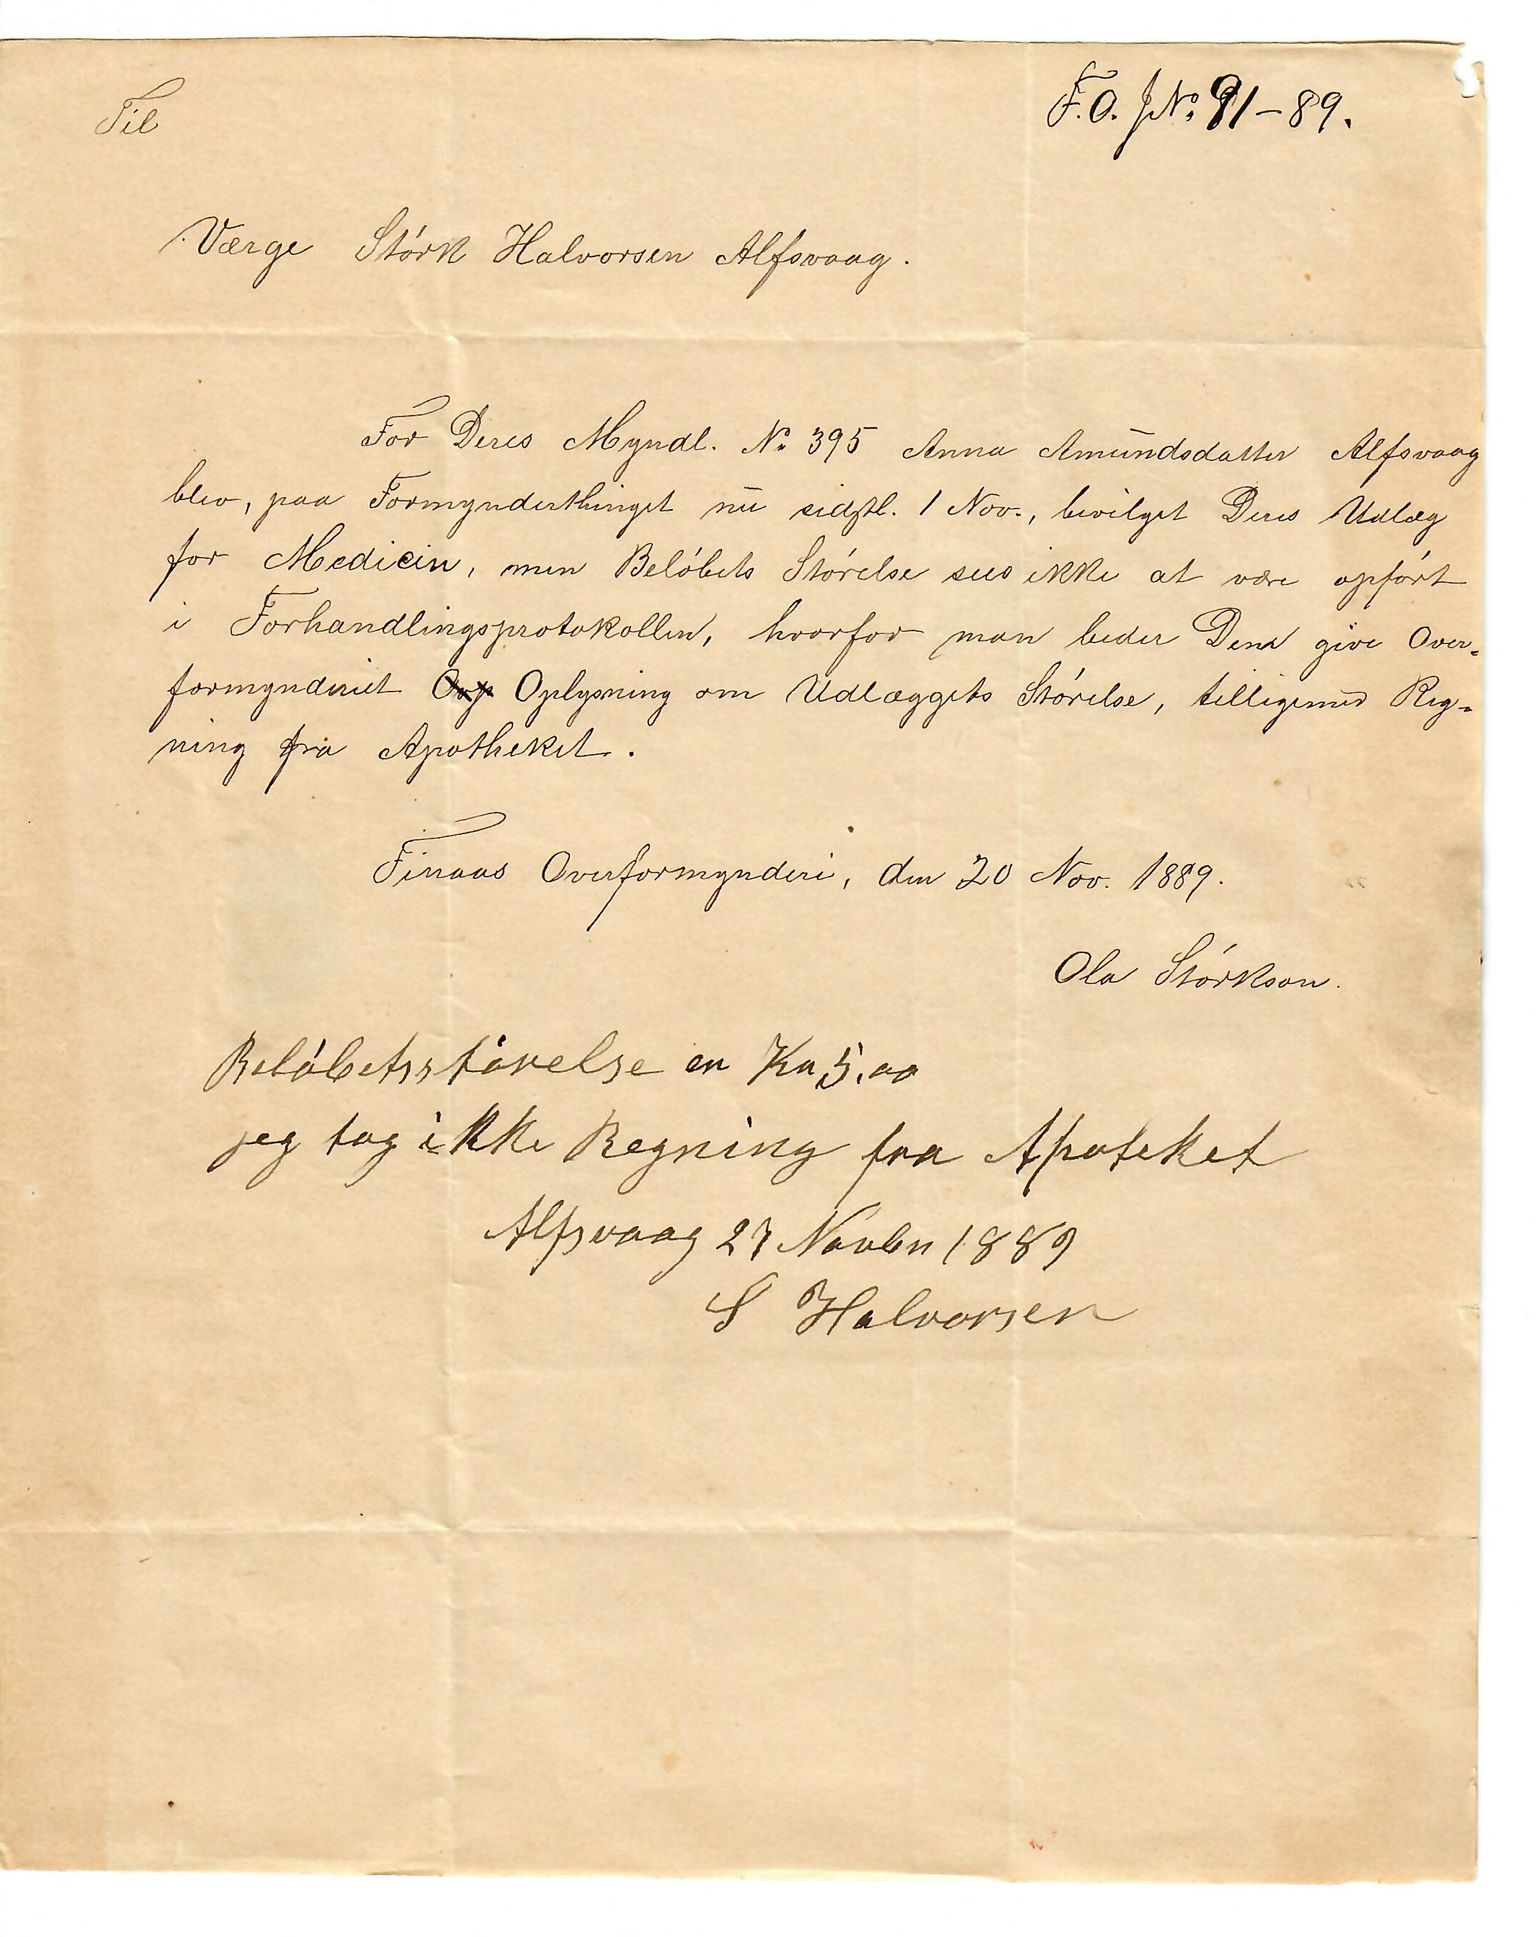 Til
F.O. J№. 91-89.
Værge Störk Halvorsen Alfsvaag.
For Deres Myndl. №. 395 Anna Amundsdatter Alfsvaag
blev, paa Formynderthinget nu sidstl. 1 Nov., bevilget Deres Udlæg
for Medicin, men Belöbets Störelse sees ikke at være opfört
i Forhandlingsprotokollen, hvorfor man beder Dem give Over-
formynderiet Oplysning om Udlæggets Störelse, tilligemed Reg-
ning fra Apotheket.
Finaas Overformynderi, den 20 Nov. 1889.
Ola Störkson.
Belöbetsstörelse er Kr 5.00
jeg tog ikke Regning fra Apoteket
Alfsvaag 27 Novbr 1889
S Halvorsen